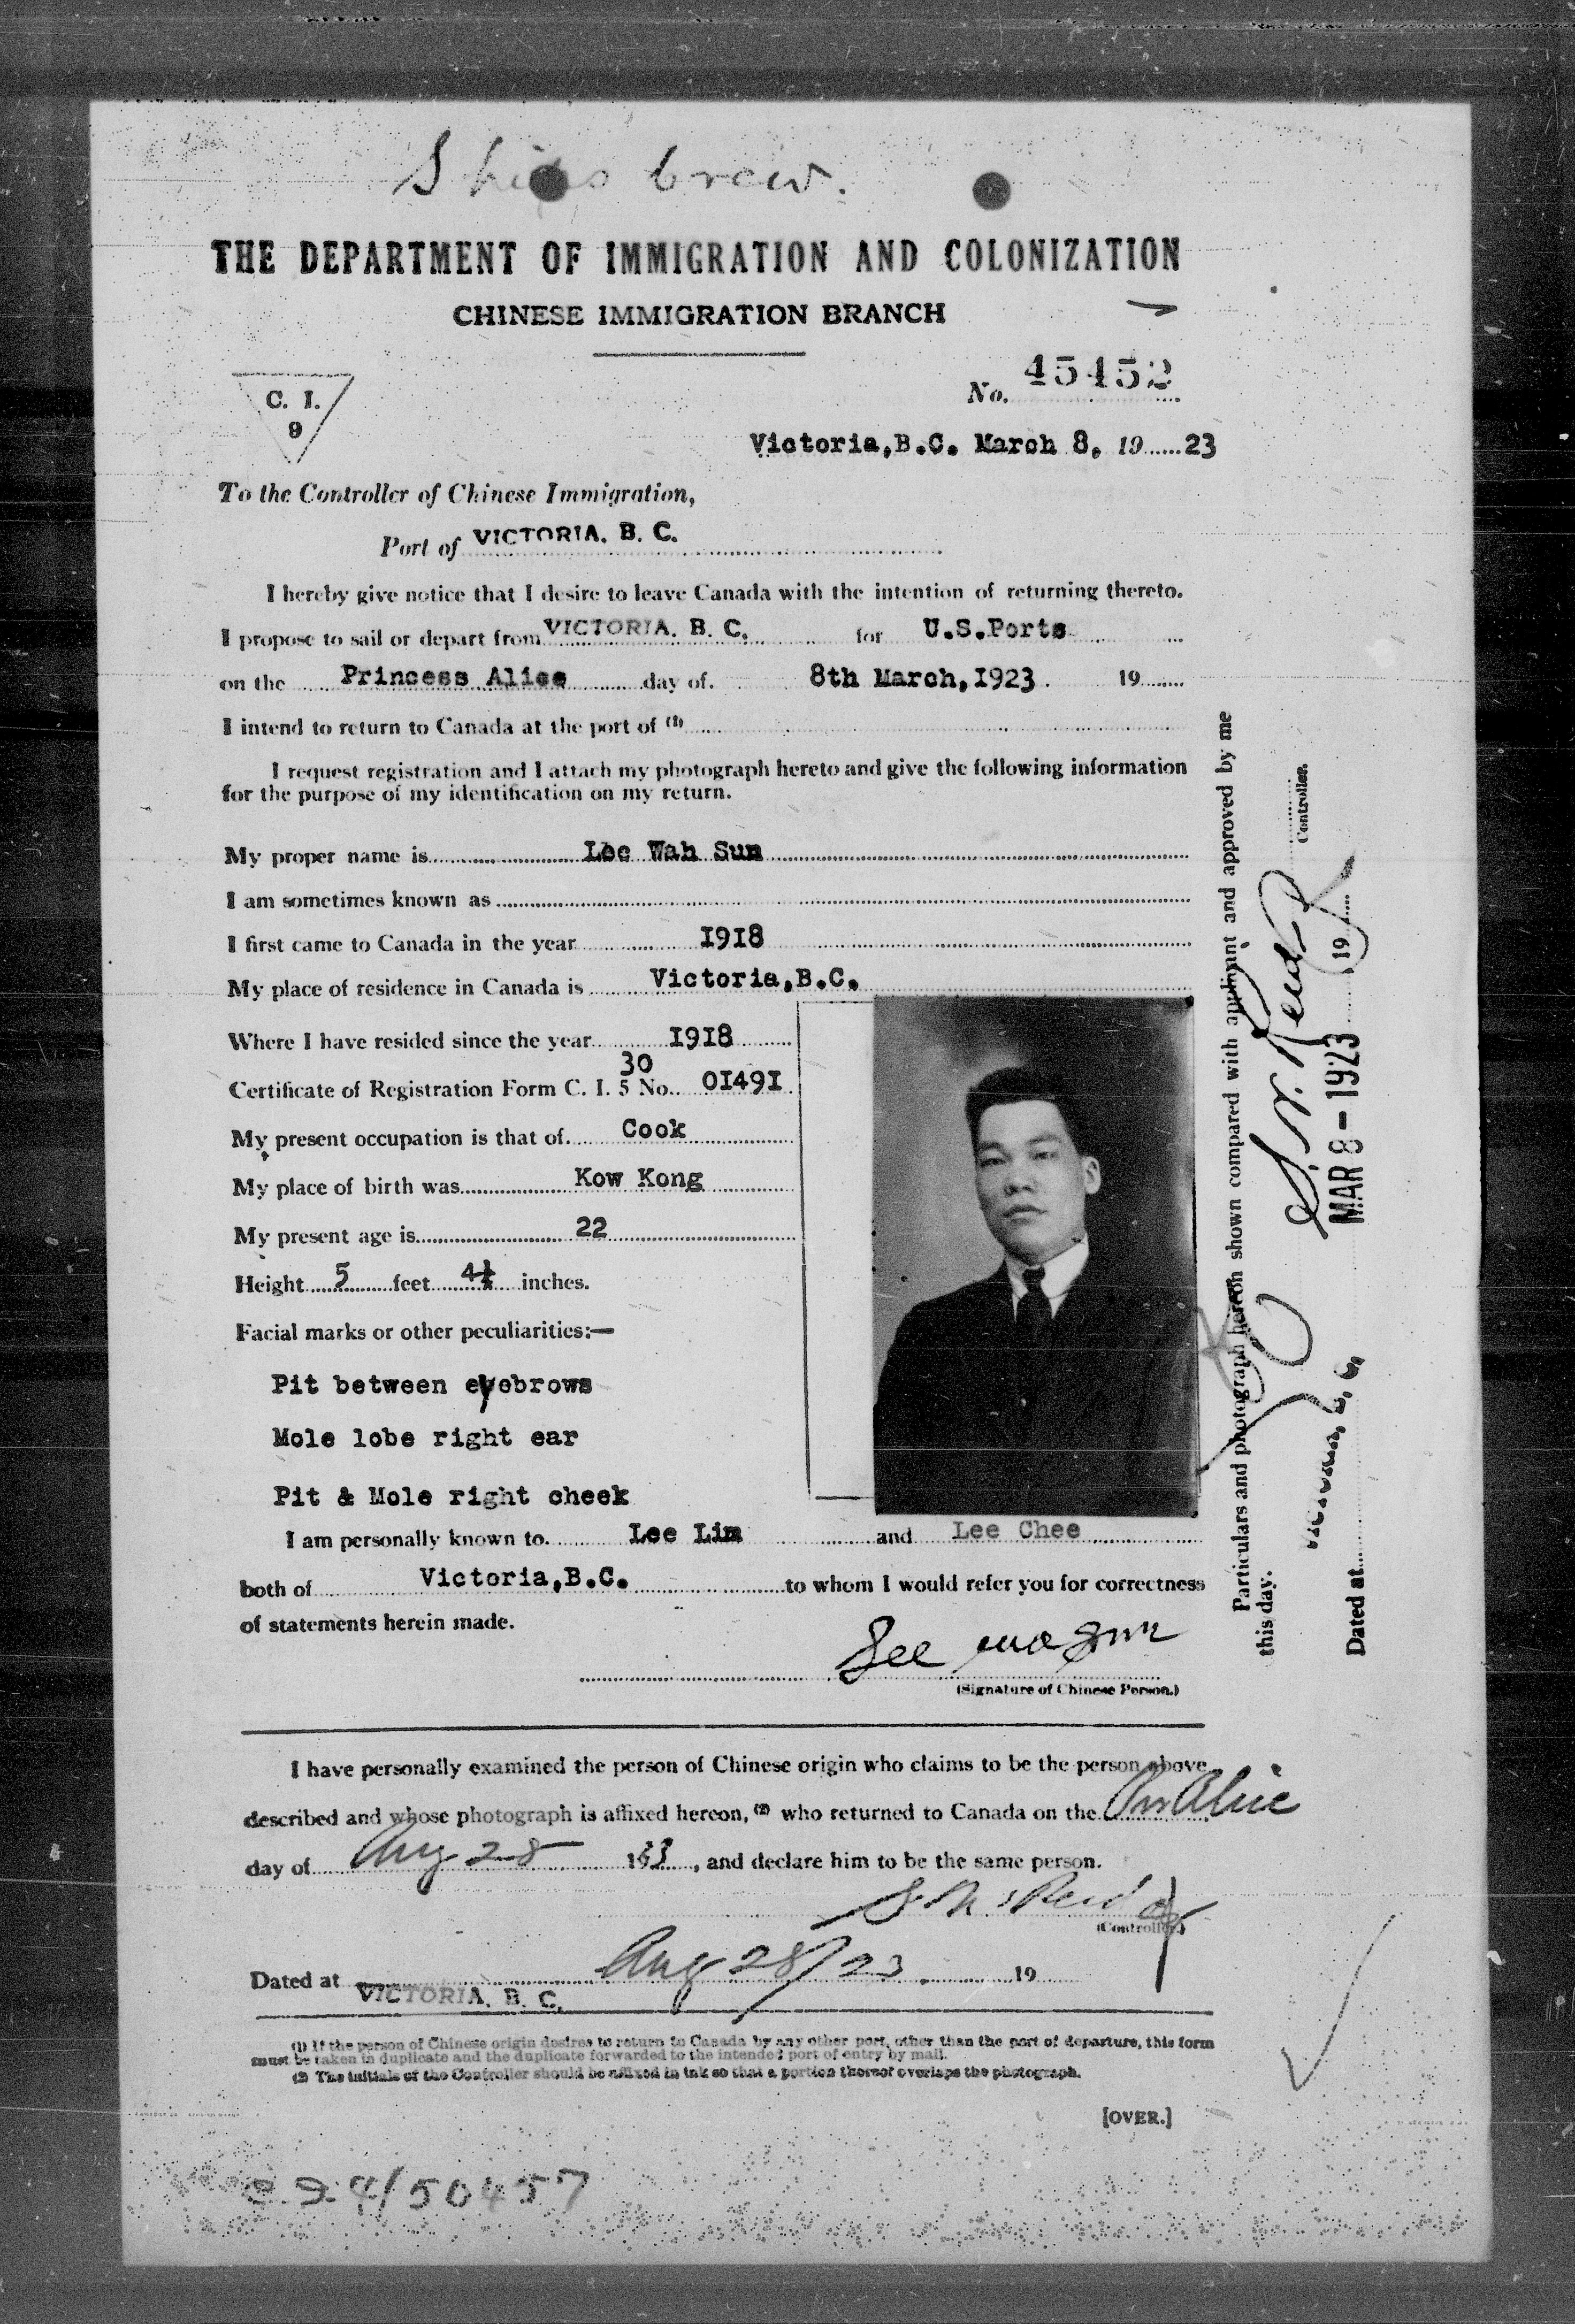 Ships Crew.
THE DEPARTMENT OF IMMIGRATION AND COLONIZATION
CHINESE IMMIGRATION BRANCH
C. I.
9
No. 45452
Victoria,B.C. March 8, 19 23
To the Controller of Chinese Immigration,
Port of VICTORIA, B. C.
I hereby give notice that I desire to leave Canada with the intention of returning thereto.
I propose to sail or depart from VICTORIA, B. C. for U.S.Ports
on the Princess Alice day of 8th March,1923. 19
I intend to return to Canada at the port of (1)
I request registration and I attach my photograph hereto and give the following information
for the purpose of my identification on my return.
My proper name is Lee Wah Sun
I am sometimes known as
I first came to Canada in the year 1918
My place of residence in Canada is Victoria,B.C.
Where I have resided since the year 1918
30
Certificate of Registration Form C. I. 5 No. 01491
My present occupation is that of Cook
My place of birth was Kow Kong
My present age is 22
Height 5 feet 4½ inches.
Facial marks or other peculiarities:—
Pit between eyebrows
Mole lobe right ear
Pit & Mole right cheek
I am personally known to Lee Lim and Lee Chee
both of Victoria,B.C. to whom I would refer you for correctness
of statements herein made.
Lee Wa Sun
(Signature of Chinese Person.)
I have personally examined the person of Chinese origin who claims to be the person above
described and whose photograph is affixed hereon, (2) who returned to Canada on the Prs Alice
day of Aug 28 1923, and declare him to be the same person.
(Controller.)
Dated at VICTORIA, B. C. Aug 28/23. 19
(1) If the person of Chinese origin desires to return to Canada by any other port, other than the port of departure, this form
must be taken in duplicate and the duplicate forwarded to the intended port of entry by mail.
(2) The initials of the Controller should be affixed in ink so that a portion thereof overlaps the photograph.
[OVER.]
C.I.9/50457
Particulars and photograph hereon shown compared with applicant and approved by me
this day.
Controller.
Dated at Victoria, B. C. MAR 8 - 1923 19